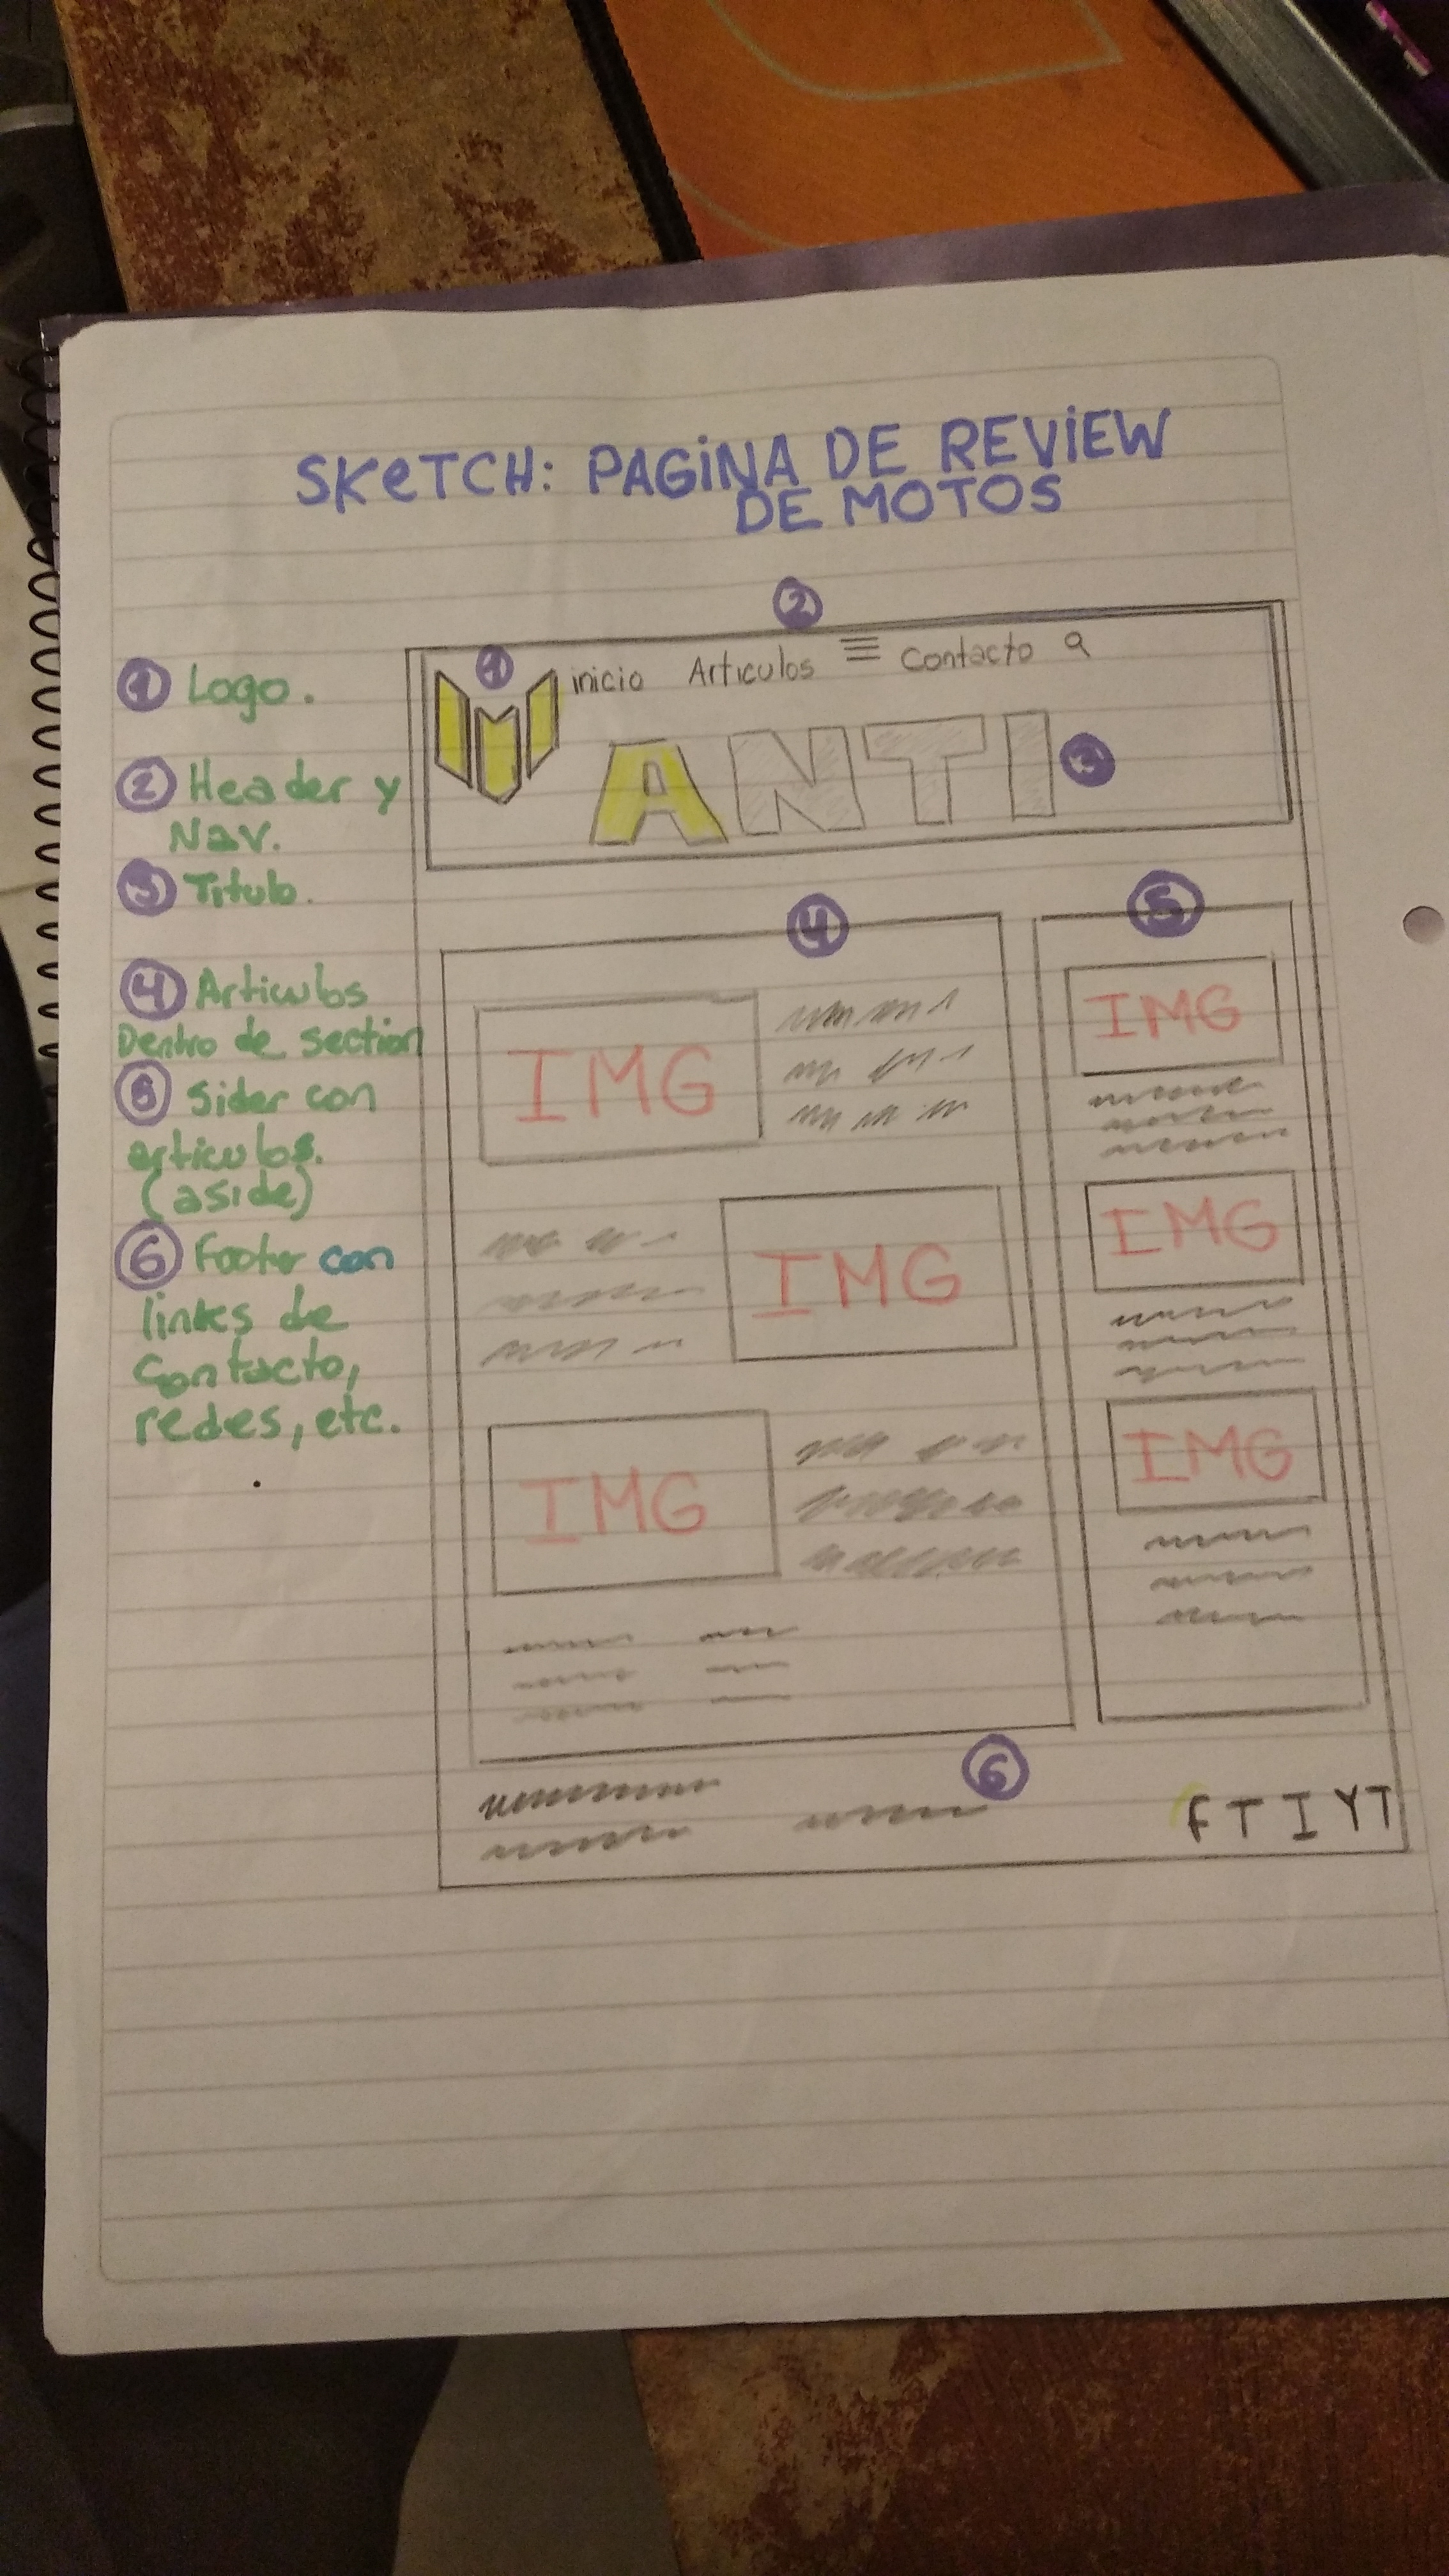 SKeTCH: PAGiNA DE REViEW
DE MOTOS
2
1 Logo.
2 Header y
Nav.
3 Titulo.
4 Articulos
Dentro de section
5 Sider con
articulos.
(aside)
6 Footer con
links de
Contacto,
redes, etc.
1
inicio Articulos ☰ Contacto
ANTI 3
4
IMG
IMG
IMG
5
IMG
IMG
IMG
6
F T I YT